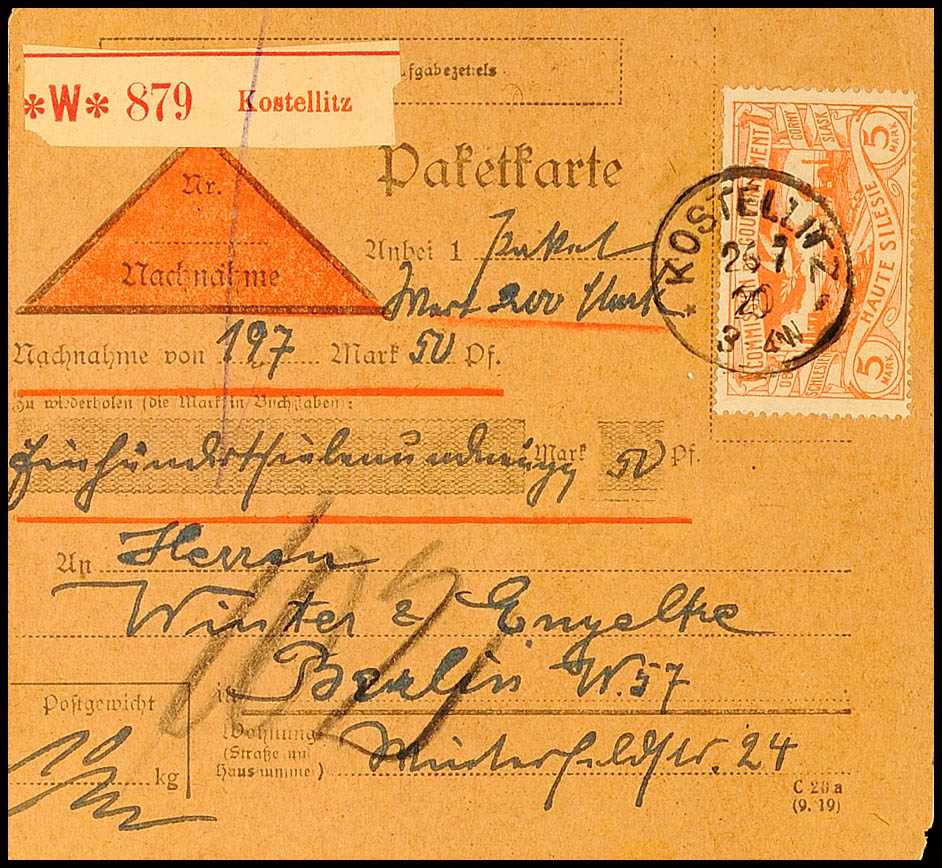 ufgabezettels
*W* 879 Kostellitz
Paketkarte
Nr.
Nachnahme
Anbei 1 Paket
Wert 200 Mark
Nachnahme von 197 Mark 50 Pf.
Zu wiederholen (die Mark in Buchstaben):
Mark 50 Pf.
An Herren
Winter & Engelke
in Berlin W. 57
Wohnung
(Straße und
Hausnummer)
Winterfeldtstr. 24
Postgewicht
kg
C 28 a
(9. 19)
* KOSTELLITZ *
26 7
20
COMMISSION DE GOUVERNEMENT
HAUTE SILESIE
GORNY
SLASK
OBER
SCHLESIEN
5 MARK
5 MARK